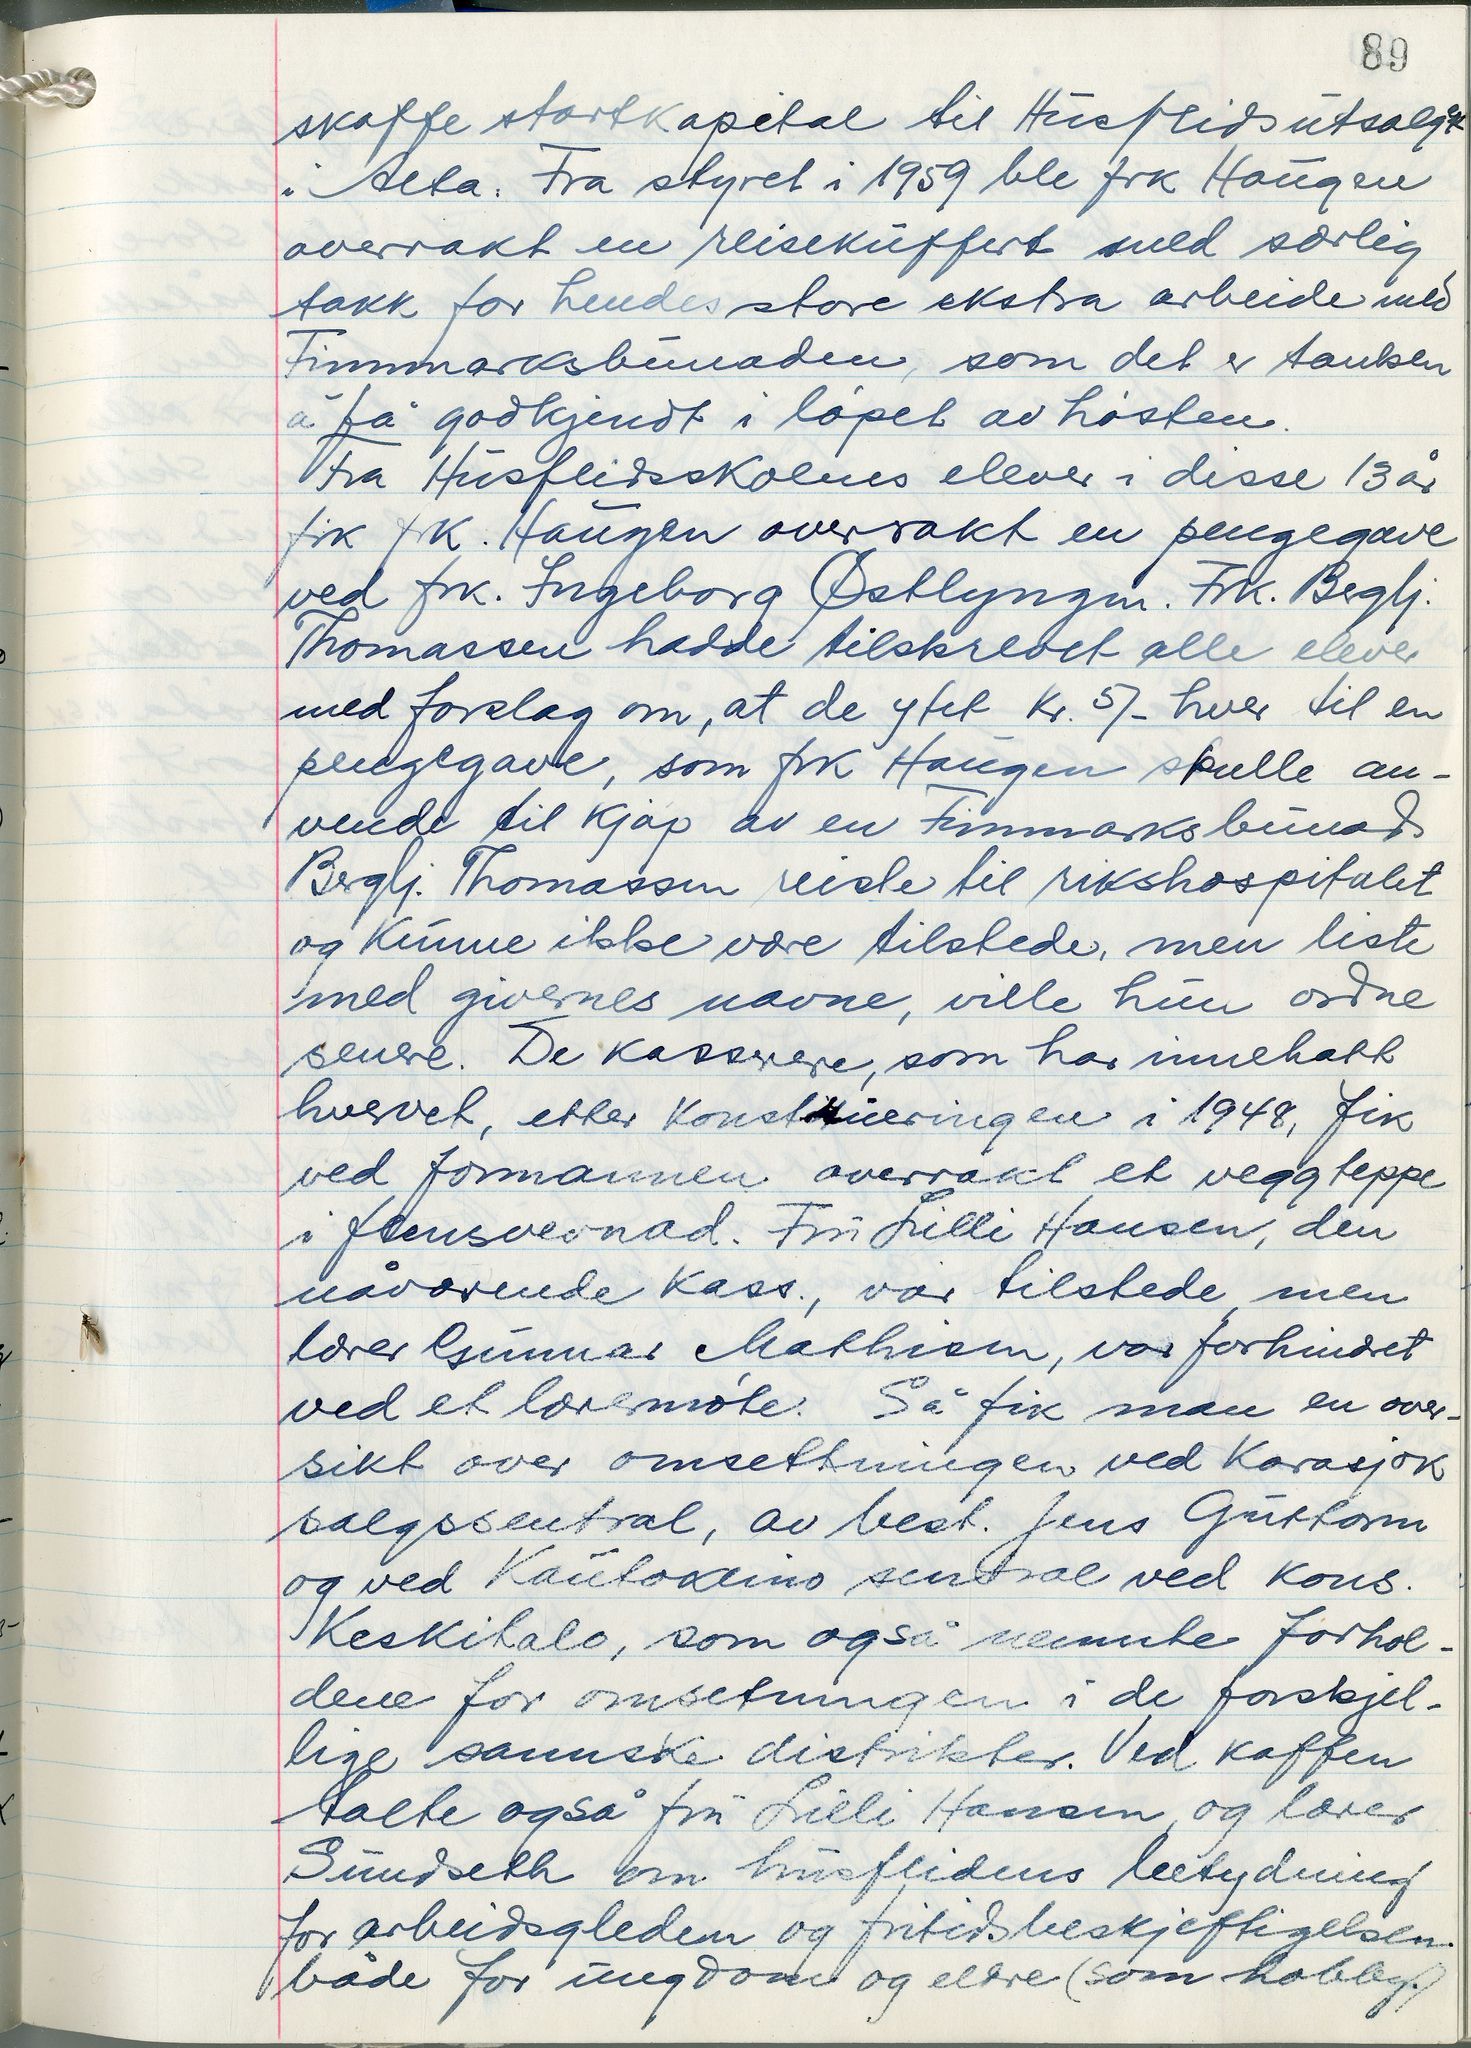 89
skaffe startkapital til Husflidsutsalget
i Alta. Fra styret i 1959 ble frk Haugen
overrakt en reisekuffert med særlig
takk for hendes store ekstra arbeide med
Finnmarksbunaden, som det er tanken
å få godkjendt i løpet av høsten.
Fra Husflidsskolens elever i disse 13 år
fik frk. Haugen overrakt en pengegave
ved frk. Ingeborg Østlyngen. Frk. Berglj.
Thomassen hadde tilskrevet alle elever
med forslag om, at de ytet kr. 5/- hver til en
pengegave, som frk Haugen skulle an-
vende til kjøp av en Finnmarksbunad.
Berglj. Thomassen reiste til rikshospitalet
og kunne ikke være tilstede, men liste
med givernes navne, ville hun ordne
senere. De kasserere, som har innehatt
hvervet, etter konstitueringen i 1948, fik
ved formannen overrakt et veggteppe
i flensvevnad. Fru Lilli Hansen, den
nåværende kass., var tilstede, men
lærer Gunnar Mathisen, var forhindret
ved et lærermøte. Så fik man en over-
sikt over omsettningen ved Karasjok
salgssentral, av best. Jens Guttorm
og ved Kautokeino sentral ved kons.
Keskitalo, som også nemnte forhol-
dene for omsetningen i de forskjel-
lige samiske distrikter. Ved kaffen
talte også fru Lilli Hansen og lærer
Sundseth om husflidens betydning
for arbeidsgleden og fritidsbeskjeftigelsen
både for ungdom og eldre (som hobby.)